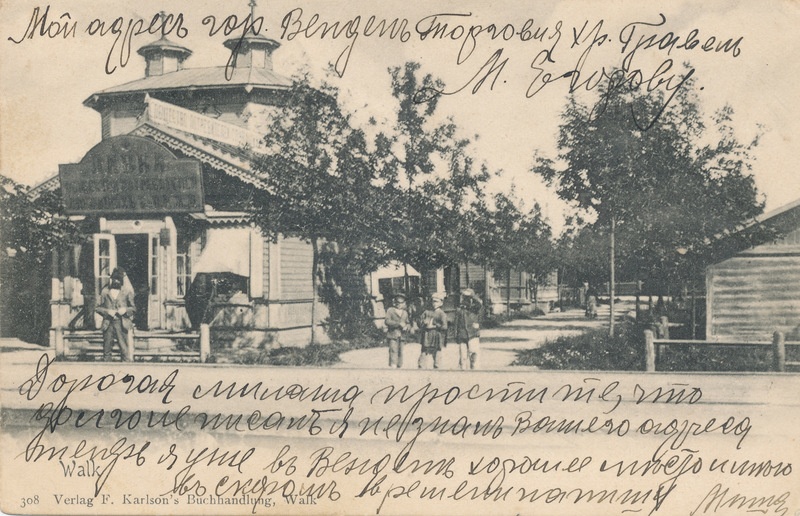 Мой адресъ гор. Венденъ Торговля хр. Гравель
М. Егорову.
ЛАВКА
Дорогая милаша простите, что
писать я не зналъ Вашего адреса
теперь я уже въ Венденъ хорошее место много
въ скоромъ времени напишу Миша
Walk
308 Verlag F. Karlson's Buchhandlung, Walk